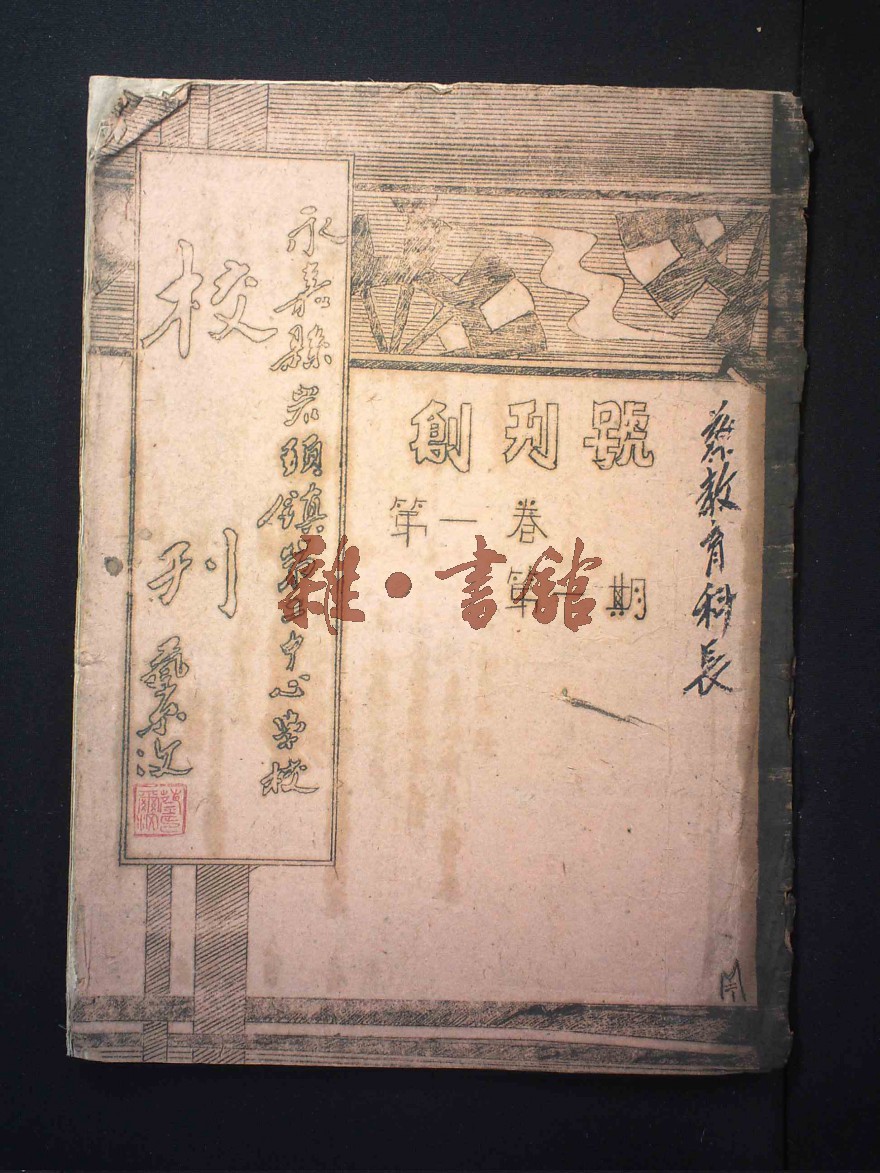 創刊號
第一卷
第一期
教育科長
永嘉縣岩頭鎮中心學校
校刊
雜·書館